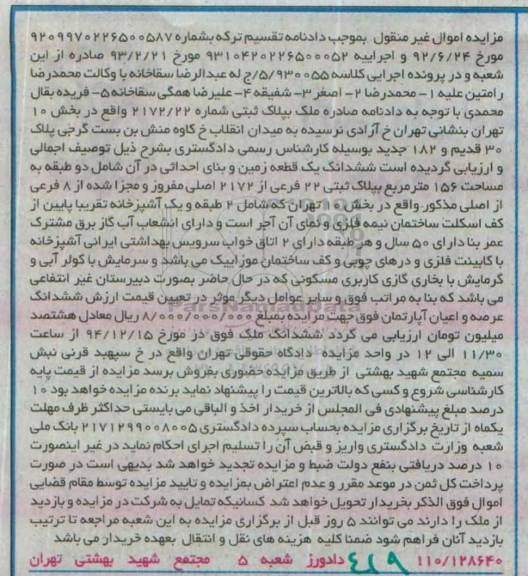 مزایده اموال غیر منقول بموجب دادنامه تقسیم ترکه بشماره ۹۲۰۹۹۷۰۲۲۶۵۰۰۵۸۷
مورخ ۹۲/۶/۲۴ و اجراییه ۹۳۱۰۴۲۰۲۲۶۵۰۰۰۵۲ مورخ ۹۳/۲/۲۱ صادره از این
شعبه و در پرونده اجرایی کلاسه ۵/۹۳۰۰۵۵/ج له عبدالرضا سقاخانه با وکالت محمدرضا
رامتین علیه ۱- محمدرضا ۲- اصغر ۳- شفیقه ۴- علیرضا همگی سقاخانه ۵- فریده بقال
محمدی با توجه به دادنامه صادره ملک بپلاک ثبتی شماره ۲۱۷۲/۲۲ واقع در بخش ۱۰
تهران بنشانی تهران خ آزادی نرسیده به میدان انقلاب خ کاوه منش بن بست گرجی پلاک
۳۰ قدیم و ۱۸۲ جدید بوسیله کارشناس رسمی دادگستری بشرح ذیل توصیف اجمالی
و ارزیابی گردیده است ششدانگ یک قطعه زمین و بنای احداثی در آن شامل دو طبقه به
مساحت ۱۵۶ مترمربع بپلاک ثبتی ۲۲ فرعی از ۲۱۷۲ اصلی مفروز و مجزا شده از ۸ فرعی
از اصلی مذکور واقع در بخش ۱۰ تهران که شامل ۲ طبقه و یک آشپزخانه تقریبا پایین از
کف اسکلت ساختمان نیمه فلزی و نمای آن آجر است و دارای انشعاب آب گاز برق مشترک
عمر بنا دارای ۵۰ سال و هر طبقه دارای ۲ اتاق خواب سرویس بهداشتی ایرانی آشپزخانه
با کابینت فلزی و درهای چوبی و کف ساختمان موزاییک می باشد و سرمایش با کولر آبی و
گرمایش با بخاری گازی کاربری مسکونی که در حال حاضر بصورت دبیرستان غیر انتفاعی
می باشد که بنا به مراتب فوق و سایر عوامل دیگر موثر در تعیین قیمت ارزش ششدانگ
عرصه و اعیان آپارتمان فوق جهت مزایده بمبلغ ۸/۰۰۰/۰۰۰/۰۰۰ ریال معادل هشتصد
میلیون تومان ارزیابی می گردد ششدانگ ملک فوق در مورخ ۹۴/۱۲/۱۵ از ساعت
۱۱/۳۰ الی ۱۲ در واحد مزایده دادگاه حقوقی تهران واقع در خ سپهبد قرنی نبش
سمیه مجتمع شهید بهشتی از طریق مزایده حضوری بفروش برسد مزایده از قیمت پایه
کارشناسی شروع و کسی که بالاترین قیمت را پیشنهاد نماید برنده مزایده خواهد بود ۱۰
درصد مبلغ پیشنهادی فی المجلس از خریدار اخذ و الباقی می بایستی حداکثر ظرف مهلت
یکماه از تاریخ برگزاری مزایده بحساب سپرده دادگستری ۲۱۷۱۲۹۹۰۰۸۰۰۵ بانک ملی
شعبه وزارت دادگستری واریز و قبض آن را تسلیم اجرای احکام نماید در غیر اینصورت
۱۰ درصد دریافتی بنفع دولت ضبط و مزایده تجدید خواهد شد بدیهی است در صورت
پرداخت کل ثمن در موعد مقرر و عدم اعتراض بمزایده و تایید مزایده توسط مقام قضایی
اموال فوق الذکر بخریدار تحویل خواهد شد کسانیکه تمایل به شرکت در مزایده و بازدید
از ملک را دارند می توانند ۵ روز قبل از برگزاری مزایده به این شعبه مراجعه تا ترتیب
بازدید آنان فراهم شود ضمنا کلیه هزینه های نقل و انتقال بعهده خریدار می باشد
۱۱۰/۱۲۸۶۴۰ دادورز شعبه ۵ مجتمع شهید بهشتی تهران